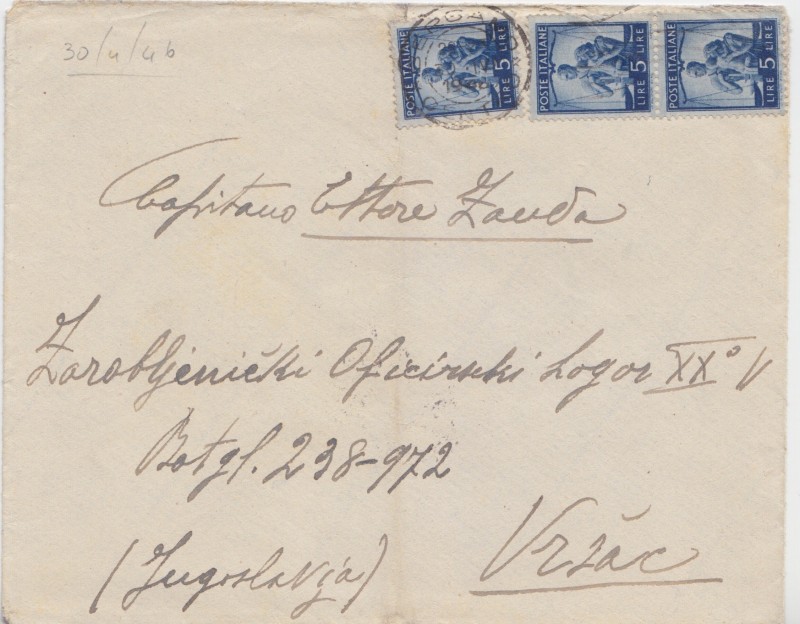 30/4/46
POSTE ITALIANE LIRE 5 POSTE ITALIANE LIRE 5 POSTE ITALIANE LIRE 5
BERGAMO
1946
Capitano Ettore Zanda
Zarobljenički Oficirski Logor XX° V
Botgl. 238-972
(Jugoslavija)
Vržac